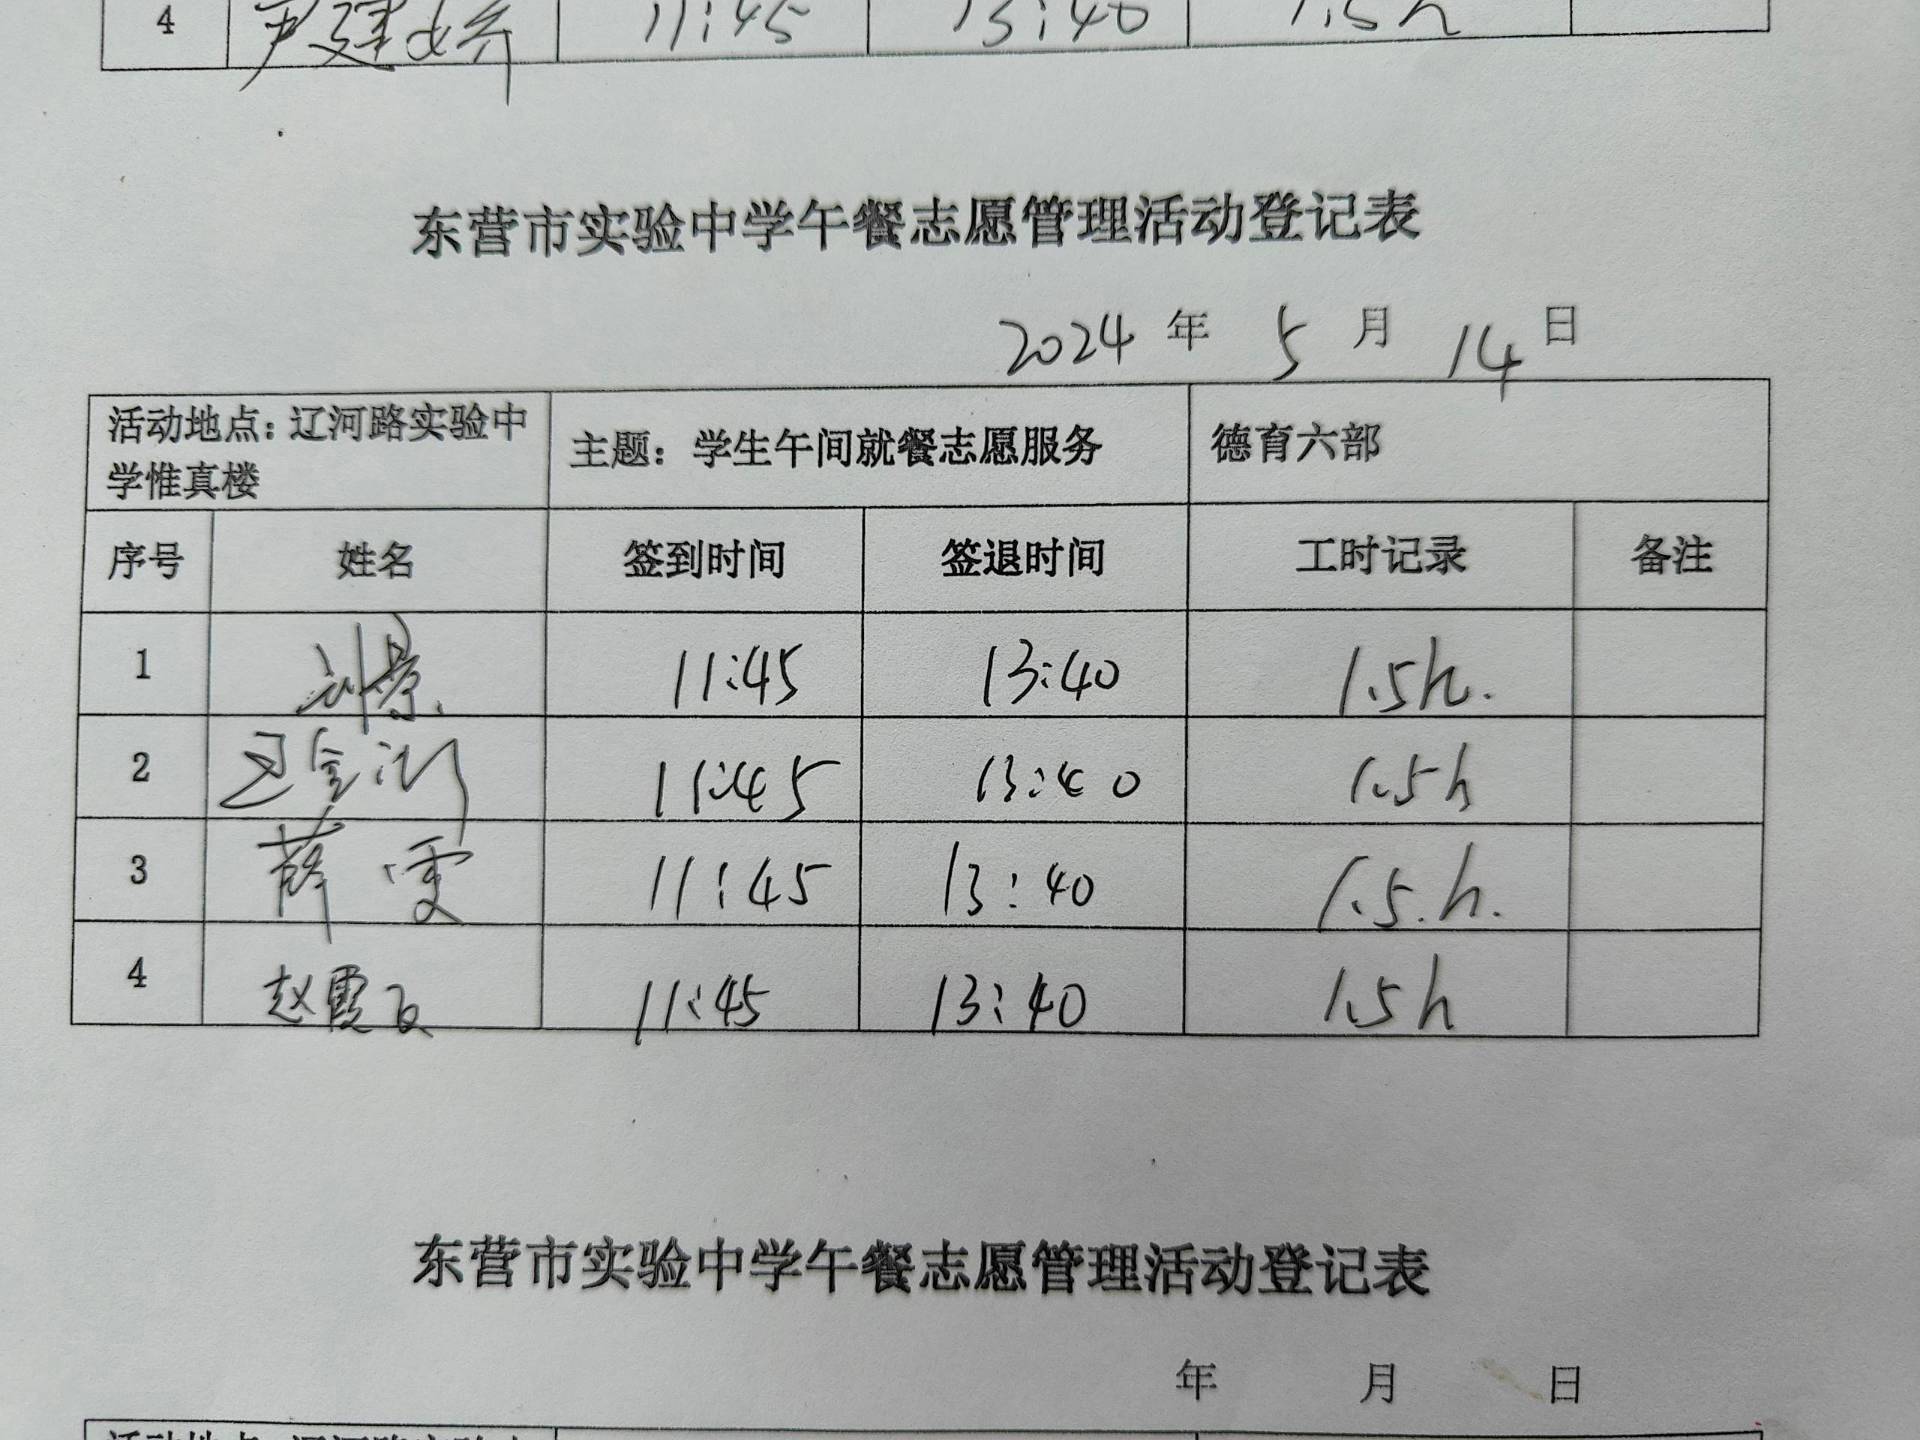 4 尹建娇 11:45 13:40 1.5h
东营市实验中学午餐志愿管理活动登记表
2024 年 5 月 14 日
活动地点：辽河路实验中
学惟真楼
主题：学生午间就餐志愿服务
德育六部
序号 姓名 签到时间 签退时间 工时记录 备注
1 刘景 11:45 13:40 1.5h.
2 11:45 13:40 1.5h
3 薛雯 11:45 13:40 1.5.h.
4 赵霞 11:45 13:40 1.5h
东营市实验中学午餐志愿管理活动登记表
年 月 日